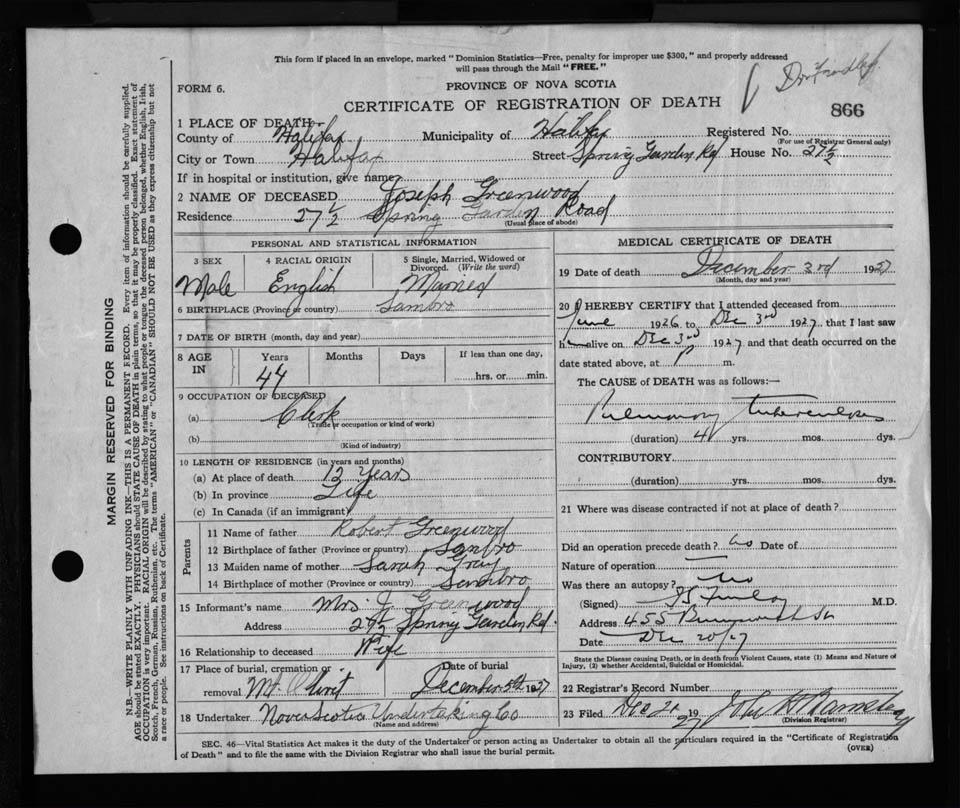 This form if placed in an envelope, marked "Dominion Statistics—Free, penalty for improper use $300," and properly addressed
will pass through the Mail "FREE."
FORM 6.
PROVINCE OF NOVA SCOTIA
CERTIFICATE OF REGISTRATION OF DEATH
866
1 PLACE OF DEATH—
County of Halifax Municipality of Halifax Registered No.
(For use of Registrar General only)
City or Town Halifax Street Spring Garden Rd House No. 27½
If in hospital or institution, give name
2 NAME OF DECEASED Joseph Greenwood
Residence 27½ Spring Garden Road
(Usual place of abode)
PERSONAL AND STATISTICAL INFORMATION
3 SEX Male
4 RACIAL ORIGIN English
5 Single, Married, Widowed or Divorced. (Write the word) Married
6 BIRTHPLACE (Province or country) Sambro
7 DATE OF BIRTH (month, day and year)
8 AGE IN Years 44 Months Days If less than one day, hrs. or min.
9 OCCUPATION OF DECEASED
(a) Clerk
(Trade or occupation or kind of work)
(b)
(Kind of industry)
10 LENGTH OF RESIDENCE (in years and months)
(a) At place of death 12 Years
(b) In province Life
(c) In Canada (if an immigrant)
Parents
11 Name of father Robert Greenwood
12 Birthplace of father (Province or country) Sambro
13 Maiden name of mother Sarah Gray
14 Birthplace of mother (Province or country) Sambro
15 Informant's name Mrs. J. Greenwood
Address 27½ Spring Garden Rd.
16 Relationship to deceased Wife
17 Place of burial, cremation or removal Mt. Olivet
Date of burial December 5th 1927
18 Undertaker Nova Scotia Undertaking Co
(Name and address)
MEDICAL CERTIFICATE OF DEATH
19 Date of death December 3rd 1927
(Month, day and year)
20 I HEREBY CERTIFY that I attended deceased from
June 1926 to Dec 3rd 1927, that I last saw
h alive on Dec 3rd 1927 and that death occurred on the
date stated above, at p m.
The CAUSE of DEATH was as follows:—
Pulmonary Tuberculosis
(duration) 4 yrs. mos. dys.
CONTRIBUTORY
(duration) yrs. mos. dys.
21 Where was disease contracted if not at place of death?
Did an operation precede death? No Date of
Nature of operation
Was there an autopsy? No
(Signed) M.D.
Address 455 St
Date Dec 20/27
State the Disease causing Death, or in death from Violent Causes, state (1) Means and Nature of
Injury, (2) whether Accidental, Suicidal or Homicidal.
22 Registrar's Record Number
23 Filed Dec 21 1927 John
(Division Registrar)
SEC. 46—Vital Statistics Act makes it the duty of the Undertaker or person acting as Undertaker to obtain all the particulars required in the "Certificate of Registration
of Death" and to file the same with the Division Registrar who shall issue the burial permit.
(OVER)
MARGIN RESERVED FOR BINDING
N.B.—WRITE PLAINLY WITH UNFADING INK—THIS IS A PERMANENT RECORD. Every item of information should be carefully supplied.
AGE should be stated EXACTLY. PHYSICIANS should STATE CAUSE OF DEATH in plain terms, so that it may be properly classified. Exact statement of
OCCUPATION is very important. RACIAL ORIGIN will be described by stating to what people or tongue the deceased person belonged, whether English, Irish,
Scotch, French, German, Russian, Ruthenian, etc. The terms "AMERICAN" or "CANADIAN" SHOULD NOT BE USED as they express citizenship but not
a race or people. See instructions on back of Certificate.